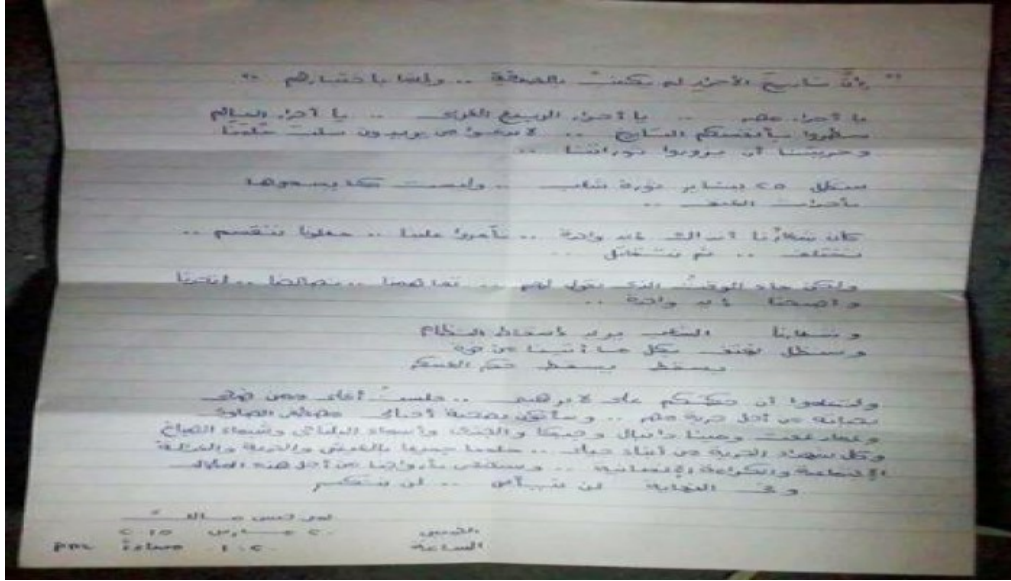 " إنَّ تاريخ الأحرار لم يكتب بالصدفة .. وإنما باختيارهم "
يا أحرار مصر .. يا أحرار الربيع العربى .. يا أحرار العالم
سطروا بأنفسكم التاريخ .. لا تدعوا من يريدون سلب
وحريتنا أن يزوروا ثوراتنا ..
ستظل ٢٥ يناير ثورة شباب .. وليست كما يسموها
بأحداث العنف ..
كان شعارنا أيد واحدة .. تآمروا علينا .. جعلونا ننقسم ..
نختلف .. ثم نتقاتل ..
ولكن جاء الوقت الذى نقول لهم .. تفاهمنا .. تصالحنا ..
وأصبحنا أيد واحدة ..
وشعارنا الشعب يريد إسقاط النظام
وسنظل نهتف بكل ما أوتينا من قوة
يسقط يسقط حكم العسكر
ولتعلموا أن حكمكم على لا يرهبنى ..
بحياته من أجل حرية مصر .. وسأكون بصحبة أحبائى مصطفى الصاوى
ومينا دانيال وجيكا والجندى وأسماء البلتاجى وشيماء الصباغ
وكل شهداء الحرية من أبناء جيلى .. حلمنا جميعا بالعيش والحرية والعدالة
الإجتماعية والكرامة الإنسانية .. وسنضحى بأرواحنا من أجل هذه المطالب
وفى النهاية لن نيأس .. لن ننكسر
الخميس
مارس ٢٠١٥
الساعة
مساءً pm